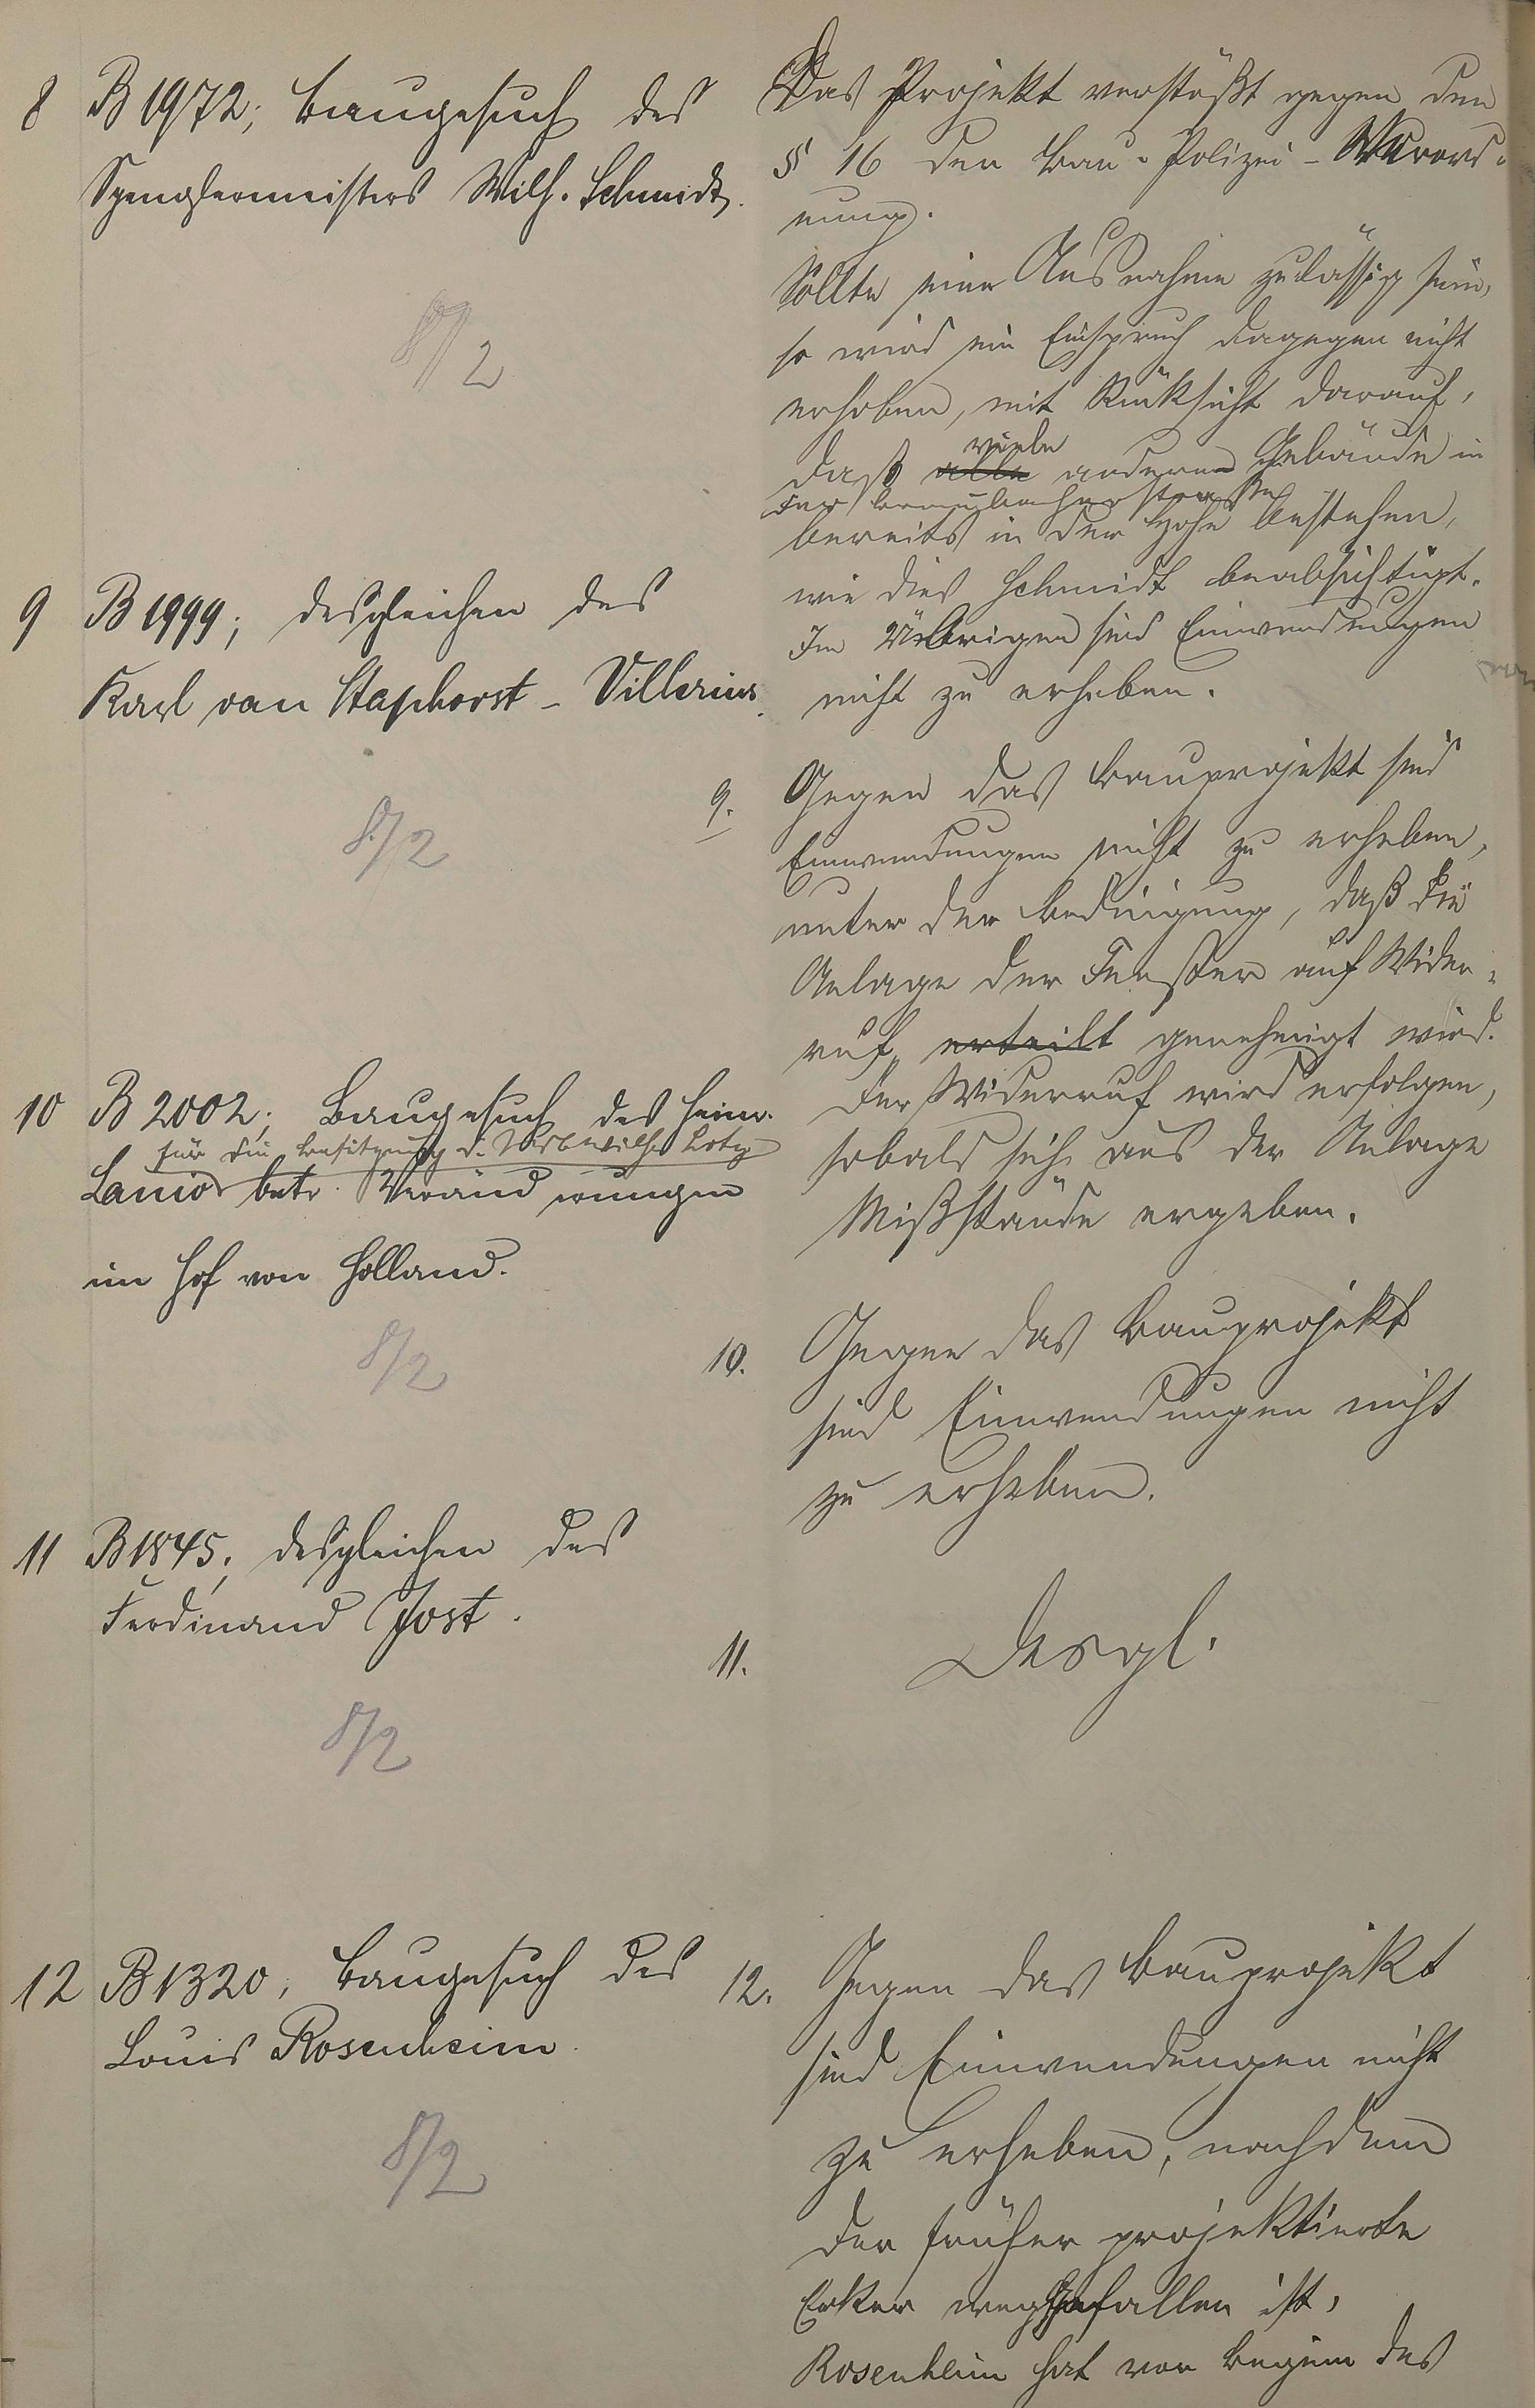 8 B 1972; Baugesuch des
Spenglermeisters Wilh. Schmidt.
8/2
Das Projekt verstößt gegen den
§ 16 der Bau-Polizei-Verord-
nung.
Sollte eine Ausnahme zulässig sein,
so wird ein Einspruch dagegen nicht
erhoben, mit Rücksicht darauf,
viele
daß alle anderen Gebäude in
der
bereits in der Höhe bestehen,
wie dies Schmidt beabsichtigt.
Im Übrigen sind Einwendungen
nicht zu erheben.
9 B 1999; desgleichen des
Karl van Staphorst - Villerius.
8/2
9. Gegen das Bauprojekt sind
Einwendungen nicht zu erheben,
unter der Bedingung, daß die
Anlage der Fenster auf Wider-
ruf erteilt genehmigt wird.
Der Widerruf wird erfolgen,
sobald sich aus der Anlage
Mißstände ergeben.
10 B 2002; Baugesuch des Heinr.
für die Besitzung d.
Lanio betr. Veränderungen
im Hof von Holland.
8/2
10. Gegen das Bauprojekt
sind Einwendungen nicht
zu erheben.
11 B 1845; desgleichen des
Ferdinand Jost.
8/2
11. Desgl.
12 B 1320, Baugesuch des
Louis Rosenheim.
8/2
12. Gegen das Bauprojekt
sind Einwendungen nicht
zu erheben, nachdem
der früher projektierte
Erker weggefallen ist,
Rosenheim hat vor Beginn des